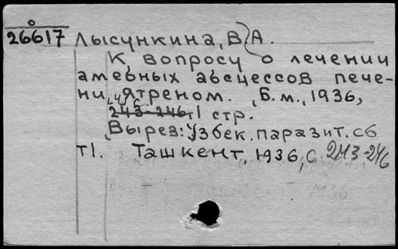 26617 Лысункина, В. А.
К вопросу о лечении
амебных абсцессов пече-
ни ятреном. Б. м., 1936,
243-246 т1 стр.
Вырез: Узбек. паразит. сб
т1. Ташкент, 1936, с. 243-246